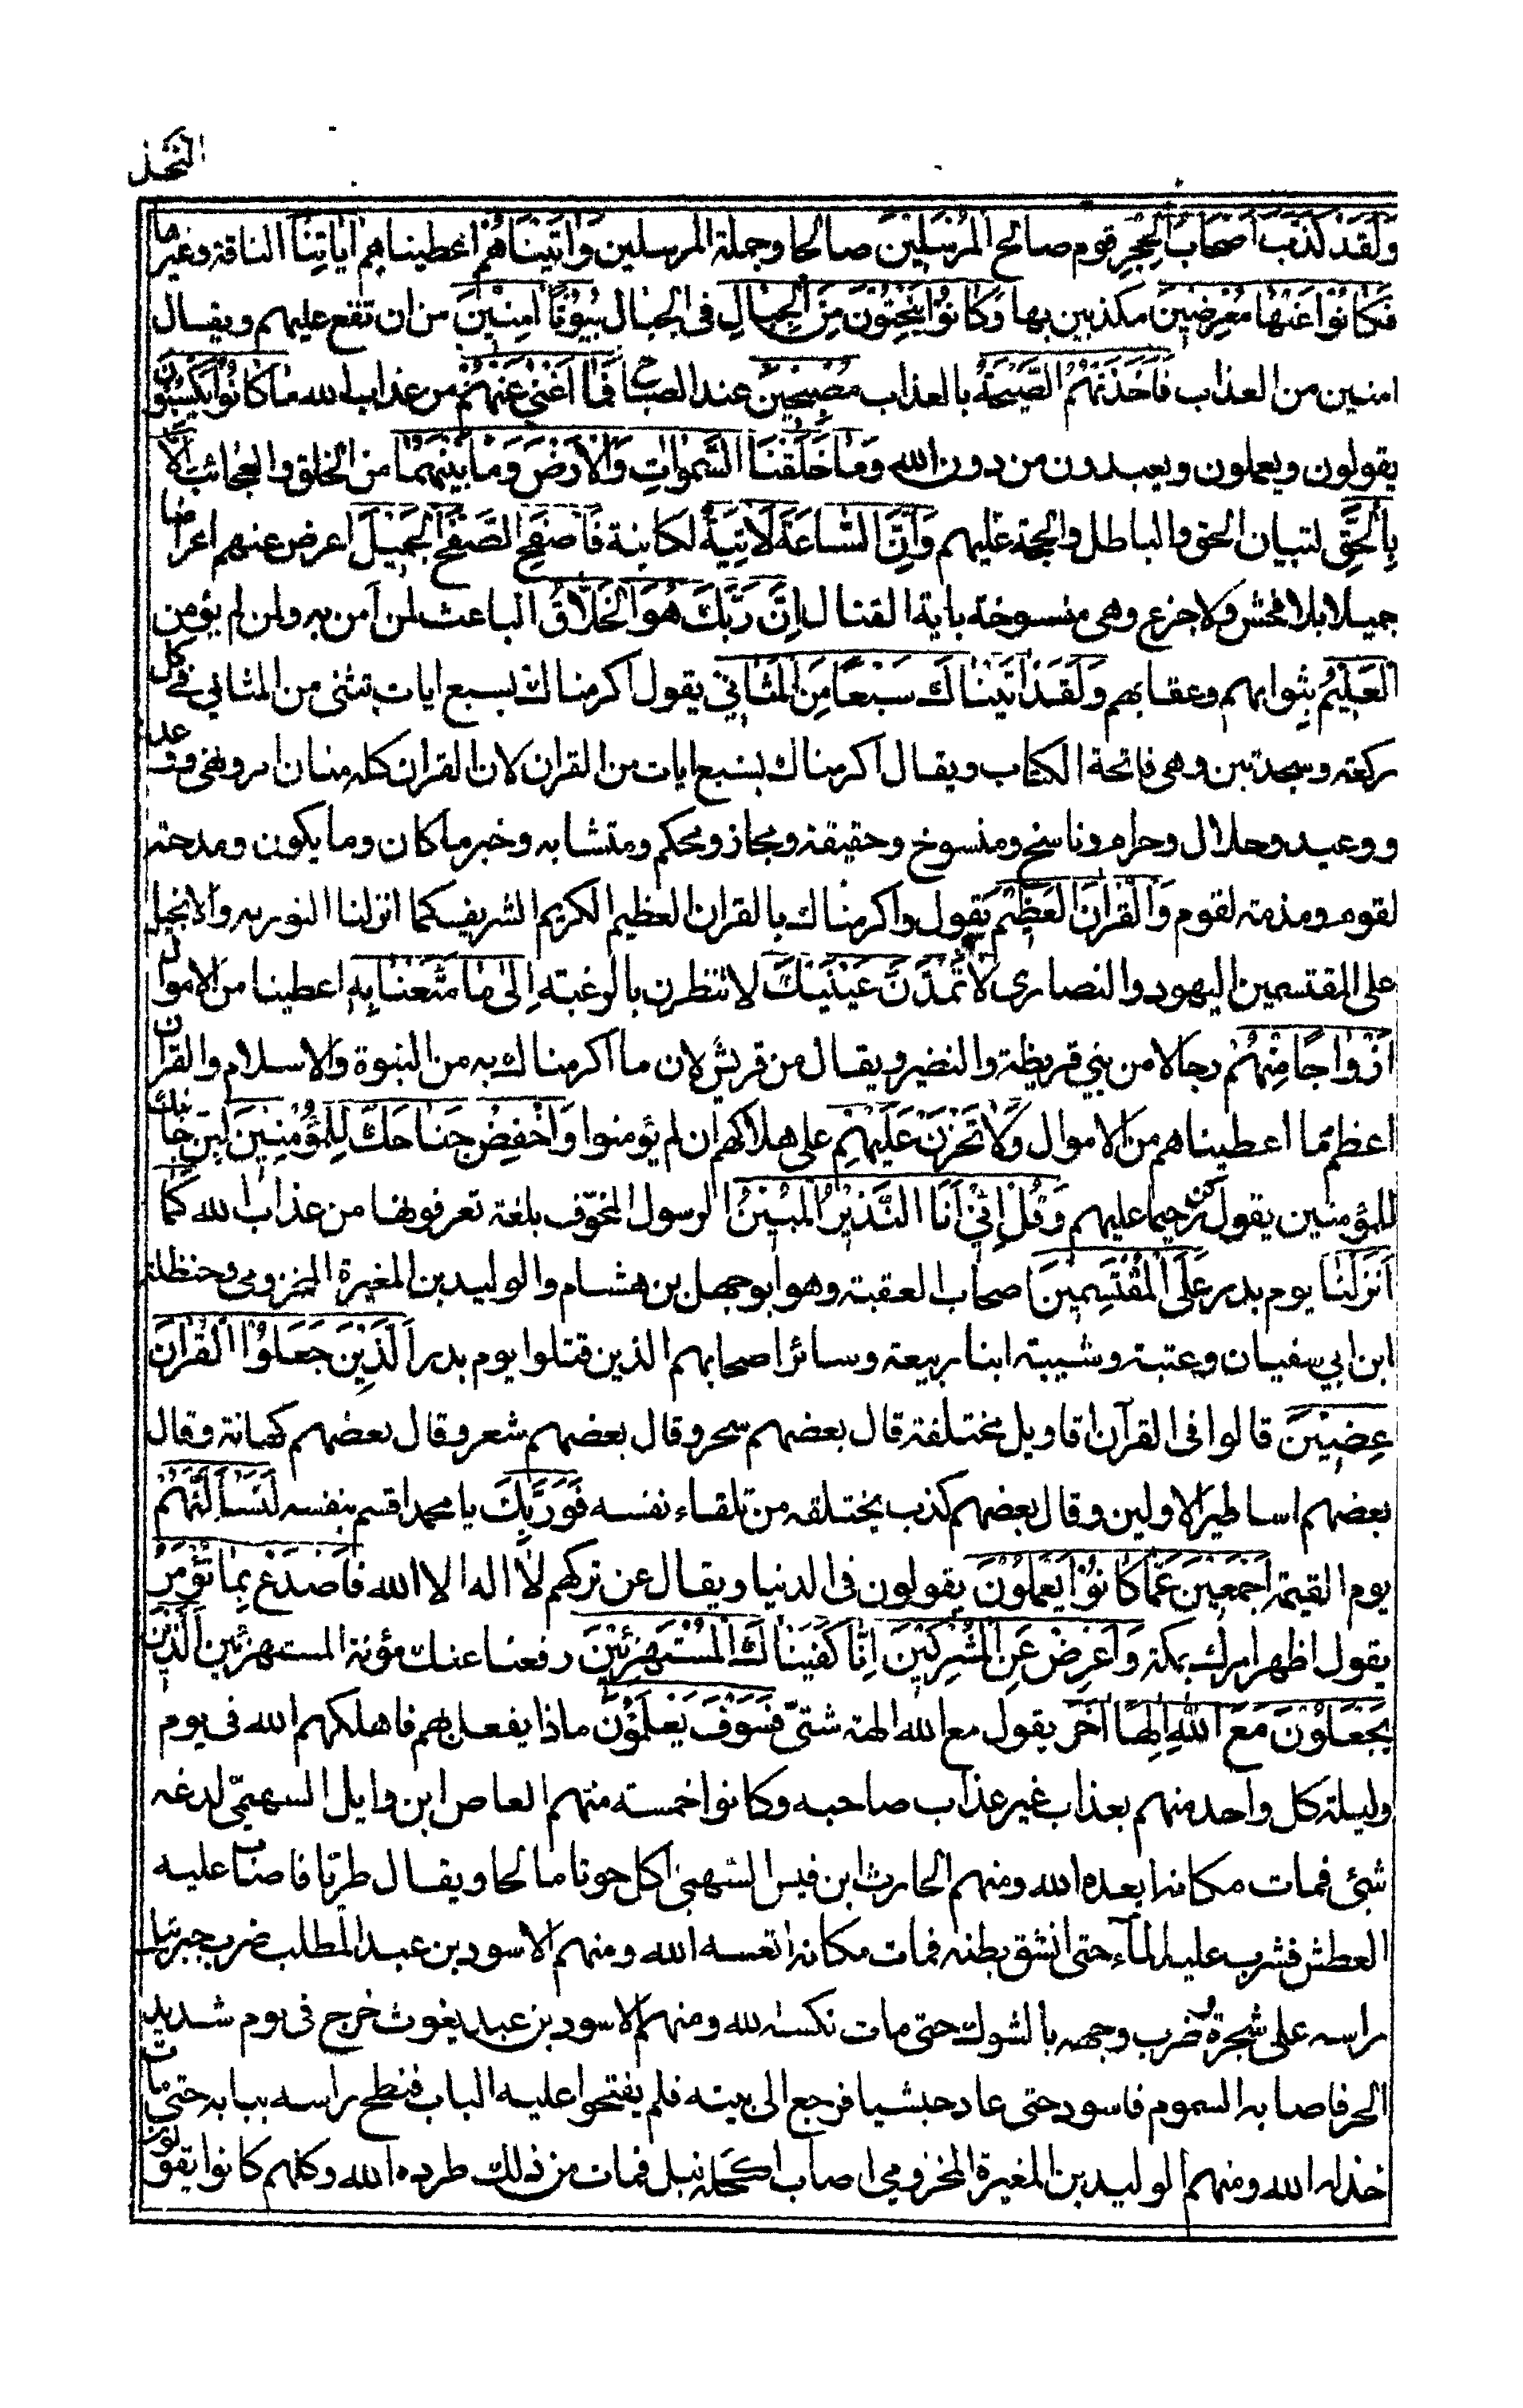 النحل
وَلَقَدْ كَذَّبَ أَصْحَابُ الْحِجْرِ قوم صالح الْمُرْسَلِيْنَ صالحا وجملة المرسلين وَآتَيْنَاهُمْ اعطيناهم آيَاتِنَا الناقة وغيرها
فَكَانُوْا عَنْهَا مُعْرِضِيْنَ مكذبين بها وَكَانُوْا يَنْحِتُوْنَ مِنَ الْجِبَالِ في الجبال بُيُوْتًا آمِنِيْنَ من ان تقع عليهم ويقال
امنين من العذاب فَأَخَذَتْهُمُ الصَّيْحَةُ بالعذاب مُصْبِحِيْنَ عند الصباح فَمَا أَغْنٰى عَنْهُمْ من عذاب الله مَا كَانُوْا يَكْسِبُوْنَ
يقولون ويعملون ويعبدون من دون الله وَمَا خَلَقْنَا السَّمٰوَاتِ وَالْأَرْضَ وَمَا بَيْنَهُمَا من الخلق والعجائب إِلَّا
بِالْحَقِّ لتبيان الحق والباطل والحجة عليهم وَإِنَّ السَّاعَةَ لَآتِيَةٌ لكاينة فَاصْفَحِ الصَّفْحَ الْجَمِيْلَ اعرض عنهم اعراضا
جميلا بلا فحش ولا جزع وهى منسوخة باية القتال إِنَّ رَبَّكَ هُوَ الْخَلَّاقُ الباعث لمن آمن به ولمن لم يؤمن
الْعَلِيْمُ بثوابهم وعقابهم وَلَقَدْ آتَيْنَاكَ سَبْعًا مِنَ الْمَثَانِيْ يقول اكرمناك بسبع ايات تثنى من المثاني في كل
ركعة وسجدتين وهى فاتحة الكتاب ويقال اكرمناك بسبع ايات من القران لان القران كله مثان امر ونهى ووعد
ووعيد وحلال وحرام وناسخ ومنسوخ وحقيقة ومجاز ومحكم ومتشابه وخبر ما كان وما يكون ومدحة
لقوم ومذمة لقوم وَالْقُرْآنَ الْعَظِيْمَ يقول واكرمناك بالقران العظيم الكريم الشريف كما انزلنا التورية والانجيل
على المقتسمين اليهود والنصارى لَا تَمُدَّنَّ عَيْنَيْكَ لا تنظرن بالرغبة إِلٰى مَا مَتَّعْنَا بِهِ اعطينا من الاموال
أَزْوَاجًا مِنْهُمْ رجالا من بني قريظة والنضير ويقال من قريش لان ما اكرمناك به من النبوة والاسلام والقران
اعظم مما اعطيناهم من الاموال وَلَا تَحْزَنْ عَلَيْهِمْ على هلاكهم ان لم يؤمنوا وَاخْفِضْ جَنَاحَكَ لِلْمُؤْمِنِيْنَ لين جانبك
للمؤمنين يقول كن رحيما عليهم وَقُلْ إِنِّيْ أَنَا النَّذِيْرُ الْمُبِيْنُ الرسول المخوّف بلغة تعرفونها من عذاب الله كَمَا
أَنْزَلْنَا يوم بدر عَلَى الْمُقْتَسِمِيْنَ اصحاب العقبة وهو ابو جهل بن هشام والوليد بن المغيرة المخزومى وحنظلة
ابن ابي سفيان وعتبة وشيبة ابنا ربيعة وسائر اصحابهم الذين قتلوا يوم بدر الَّذِيْنَ جَعَلُوْا الْقُرْآنَ
عِضِيْنَ قالوا في القرآن اقاويل مختلفة قال بعضهم سحر وقال بعضهم شعر وقال بعضهم كهانة وقال
بعضهم اساطير الاولين وقال بعضهم كذب يختلقه من تلقاء نفسه فَوَرَبِّكَ يا محمد اقسم بنفسه لَنَسْأَلَنَّهُمْ
يوم القيمة أَجْمَعِيْنَ عَمَّا كَانُوْا يَعْمَلُوْنَ يقولون في الدنيا ويقال عن تركهم لا اله الا الله فَاصْدَعْ بِمَا تُؤْمَرُ
يقول اظهر امرك بمكة وَأَعْرِضْ عَنِ الْمُشْرِكِيْنَ إِنَّا كَفَيْنَاكَ الْمُسْتَهْزِئِيْنَ رفعنا عنك مؤنة المستهزئين الَّذِيْنَ
يَجْعَلُوْنَ مَعَ اللّٰهِ إِلٰهًا آخَرَ يقول مع الله الهة شتّى فَسَوْفَ يَعْلَمُوْنَ ماذا يفعل بهم فاهلكهم الله فى يوم
وليلة كل واحد منهم بعذاب غير عذاب صاحبه وكانوا خمسة منهم العاص ابن وايل السهمّي لدغه
شئ فمات مكانه ابعده الله ومنهم الحارث ابن قيس السهمي اكل حوتا مالحا ويقال طريا فاصاب عليه
العطش فشرب عليه المآء حتى انشق بطنه فمات مكانه اتعسه الله ومنهم الاسود بن عبد المطلب ضرب جبرئيل
راسه على شجرة وضرب وجهه بالشوك حتى مات نكسه الله ومنهم الاسود بن عبد يغوث خرج فى يوم شديد
الحر فاصابه السموم فاسود حتى عاد حبشيا فرجع الى بيته فلم يفتحوا عليه الباب فنطح راسه ببابه حتى مات
خذله الله ومنهم الوليد بن المغيرة المخزومي اصاب اكحله نبل فمات من ذلك طرده الله وكلهم كانوا يقولون